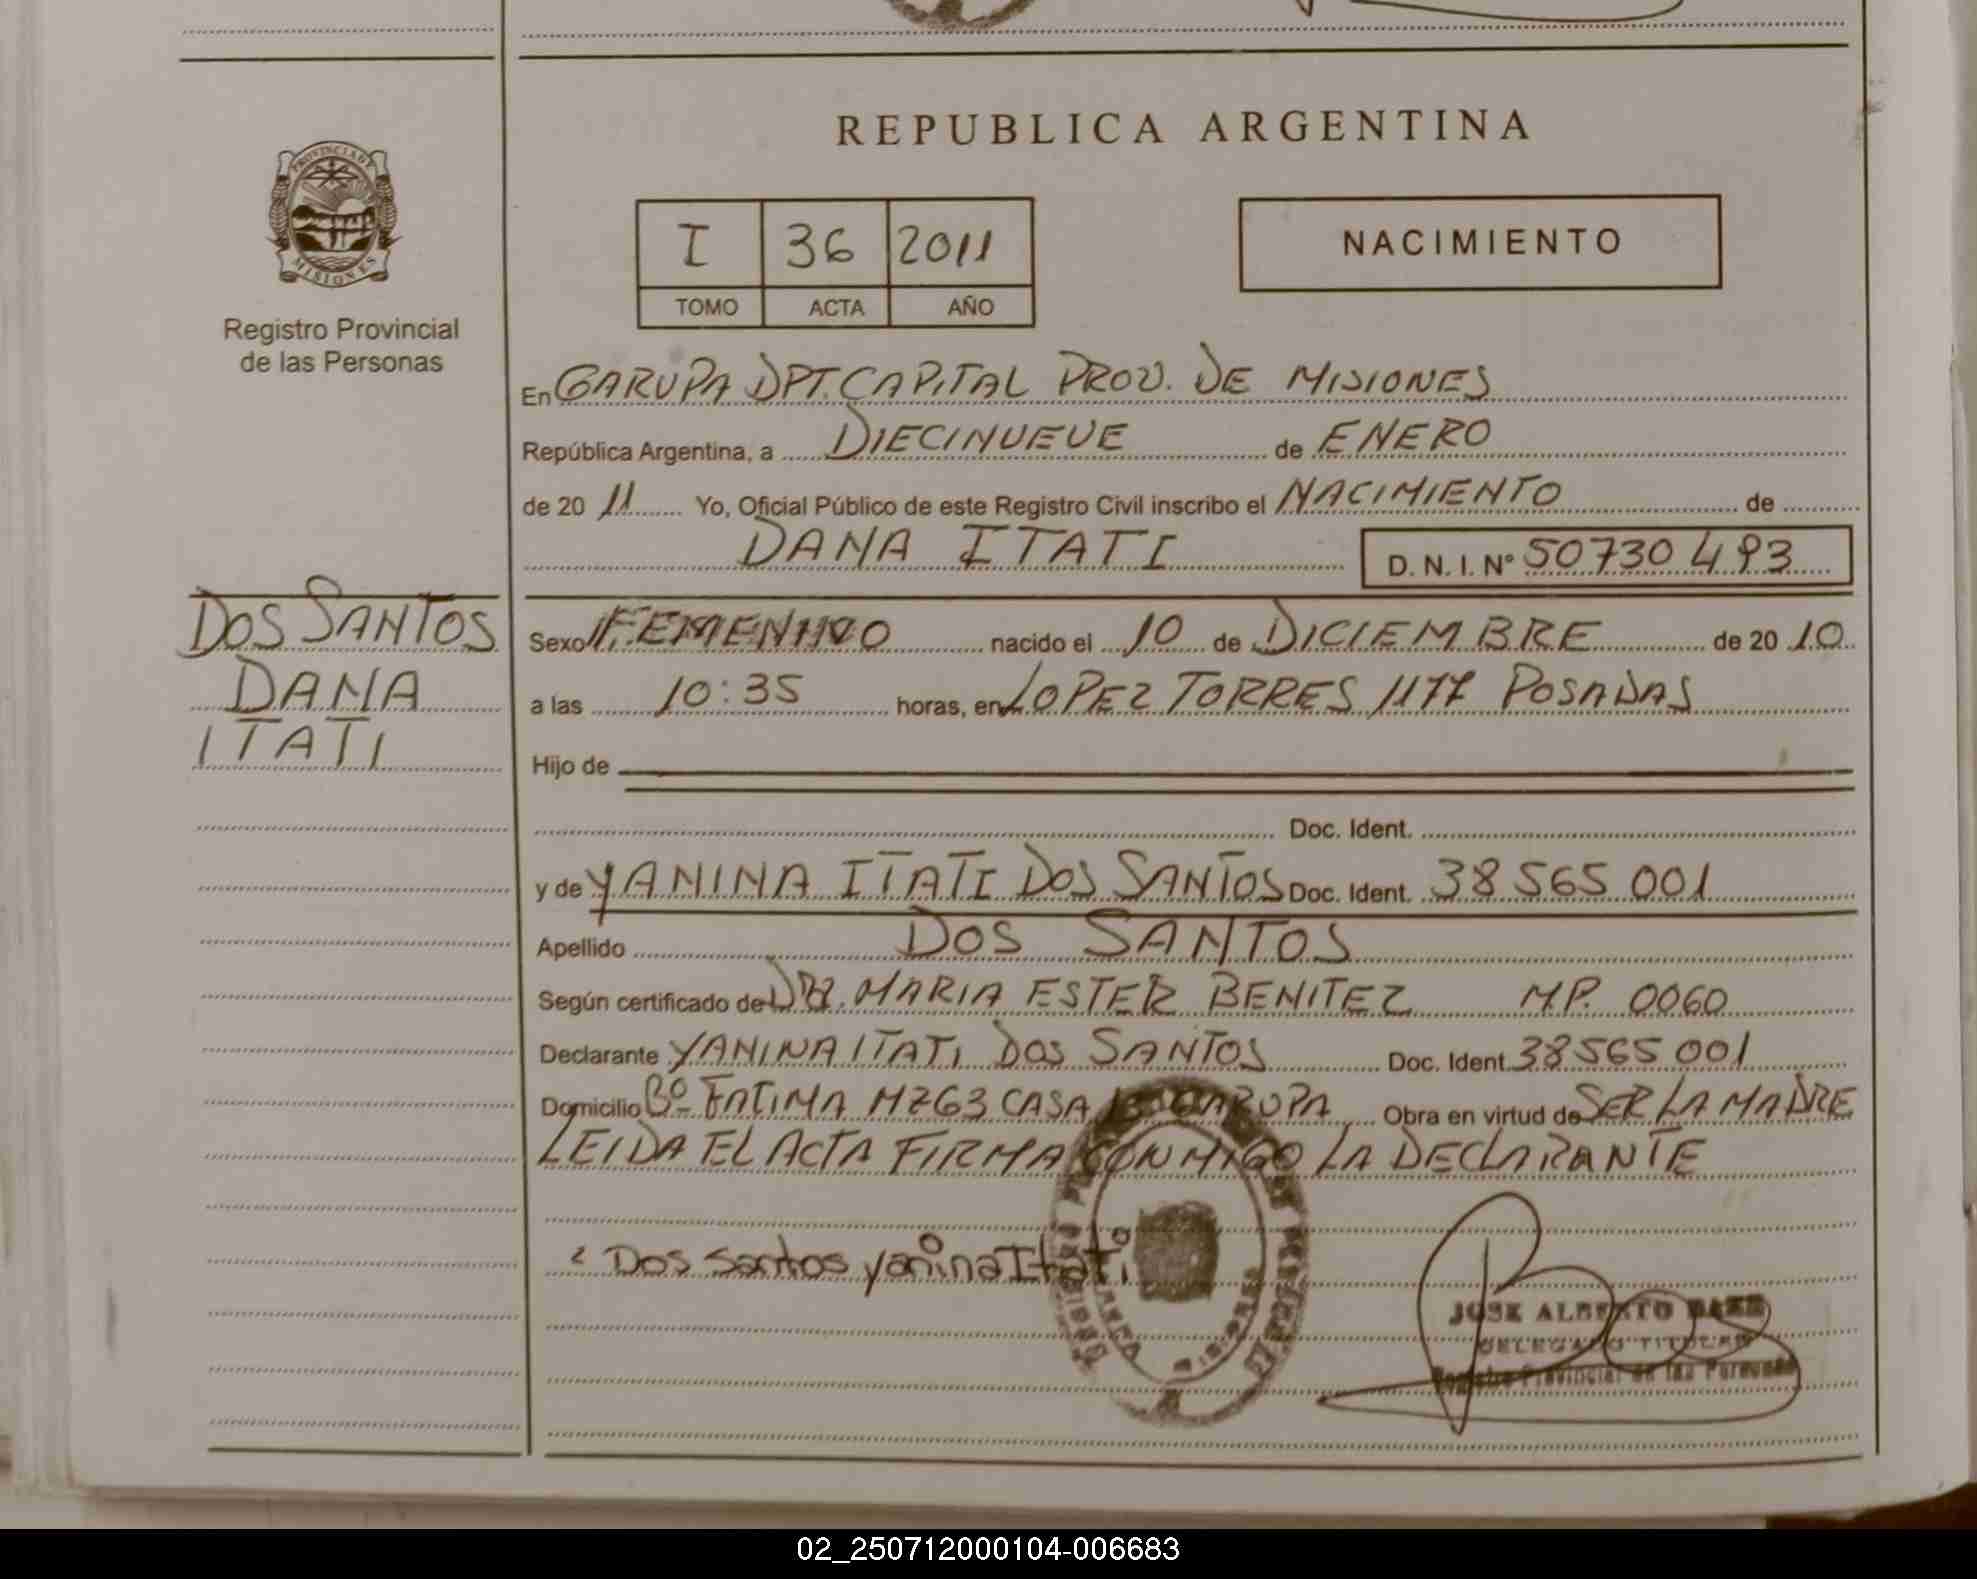 REPUBLICA ARGENTINA
PROVINCIA DE
MISIONES
Registro Provincial
de las Personas
I 36 2011
TOMO ACTA AÑO
NACIMIENTO
En GARUPA DPT. CAPITAL PROV. DE MISIONES
República Argentina, a DIECINUEVE de ENERO
de 20 11 Yo, Oficial Público de este Registro Civil inscribo el NACIMIENTO de
DANA ITATI D. N. I. Nº 50730 493
DOS SANTOS
DANA
ITATI
Sexo FEMENINO nacido el 10 de DICIEMBRE de 20 10
a las 10:35 horas, en LOPEZ TORRES 1177 POSADAS
Hijo de
Doc. Ident.
y de YANINA ITATI DOS SANTOS Doc. Ident. 38 565 001
Apellido DOS SANTOS
Según certificado de DRA. MARIA ESTER BENITEZ M.P. 0060
Declarante YANINA ITATI DOS SANTOS Doc. Ident. 38565 001
Domicilio Bº FATIMA MZ63 CASA GARUPA Obra en virtud de SER LA MADRE
LEIDA EL ACTA FIRMA CONMIGO LA DECLARANTE
Dos santos yanina Itati
JOSE ALBERTO BAEZ
DELEGADO TITULAR
Registro Provincial de las Personas
02_250712000104-006683